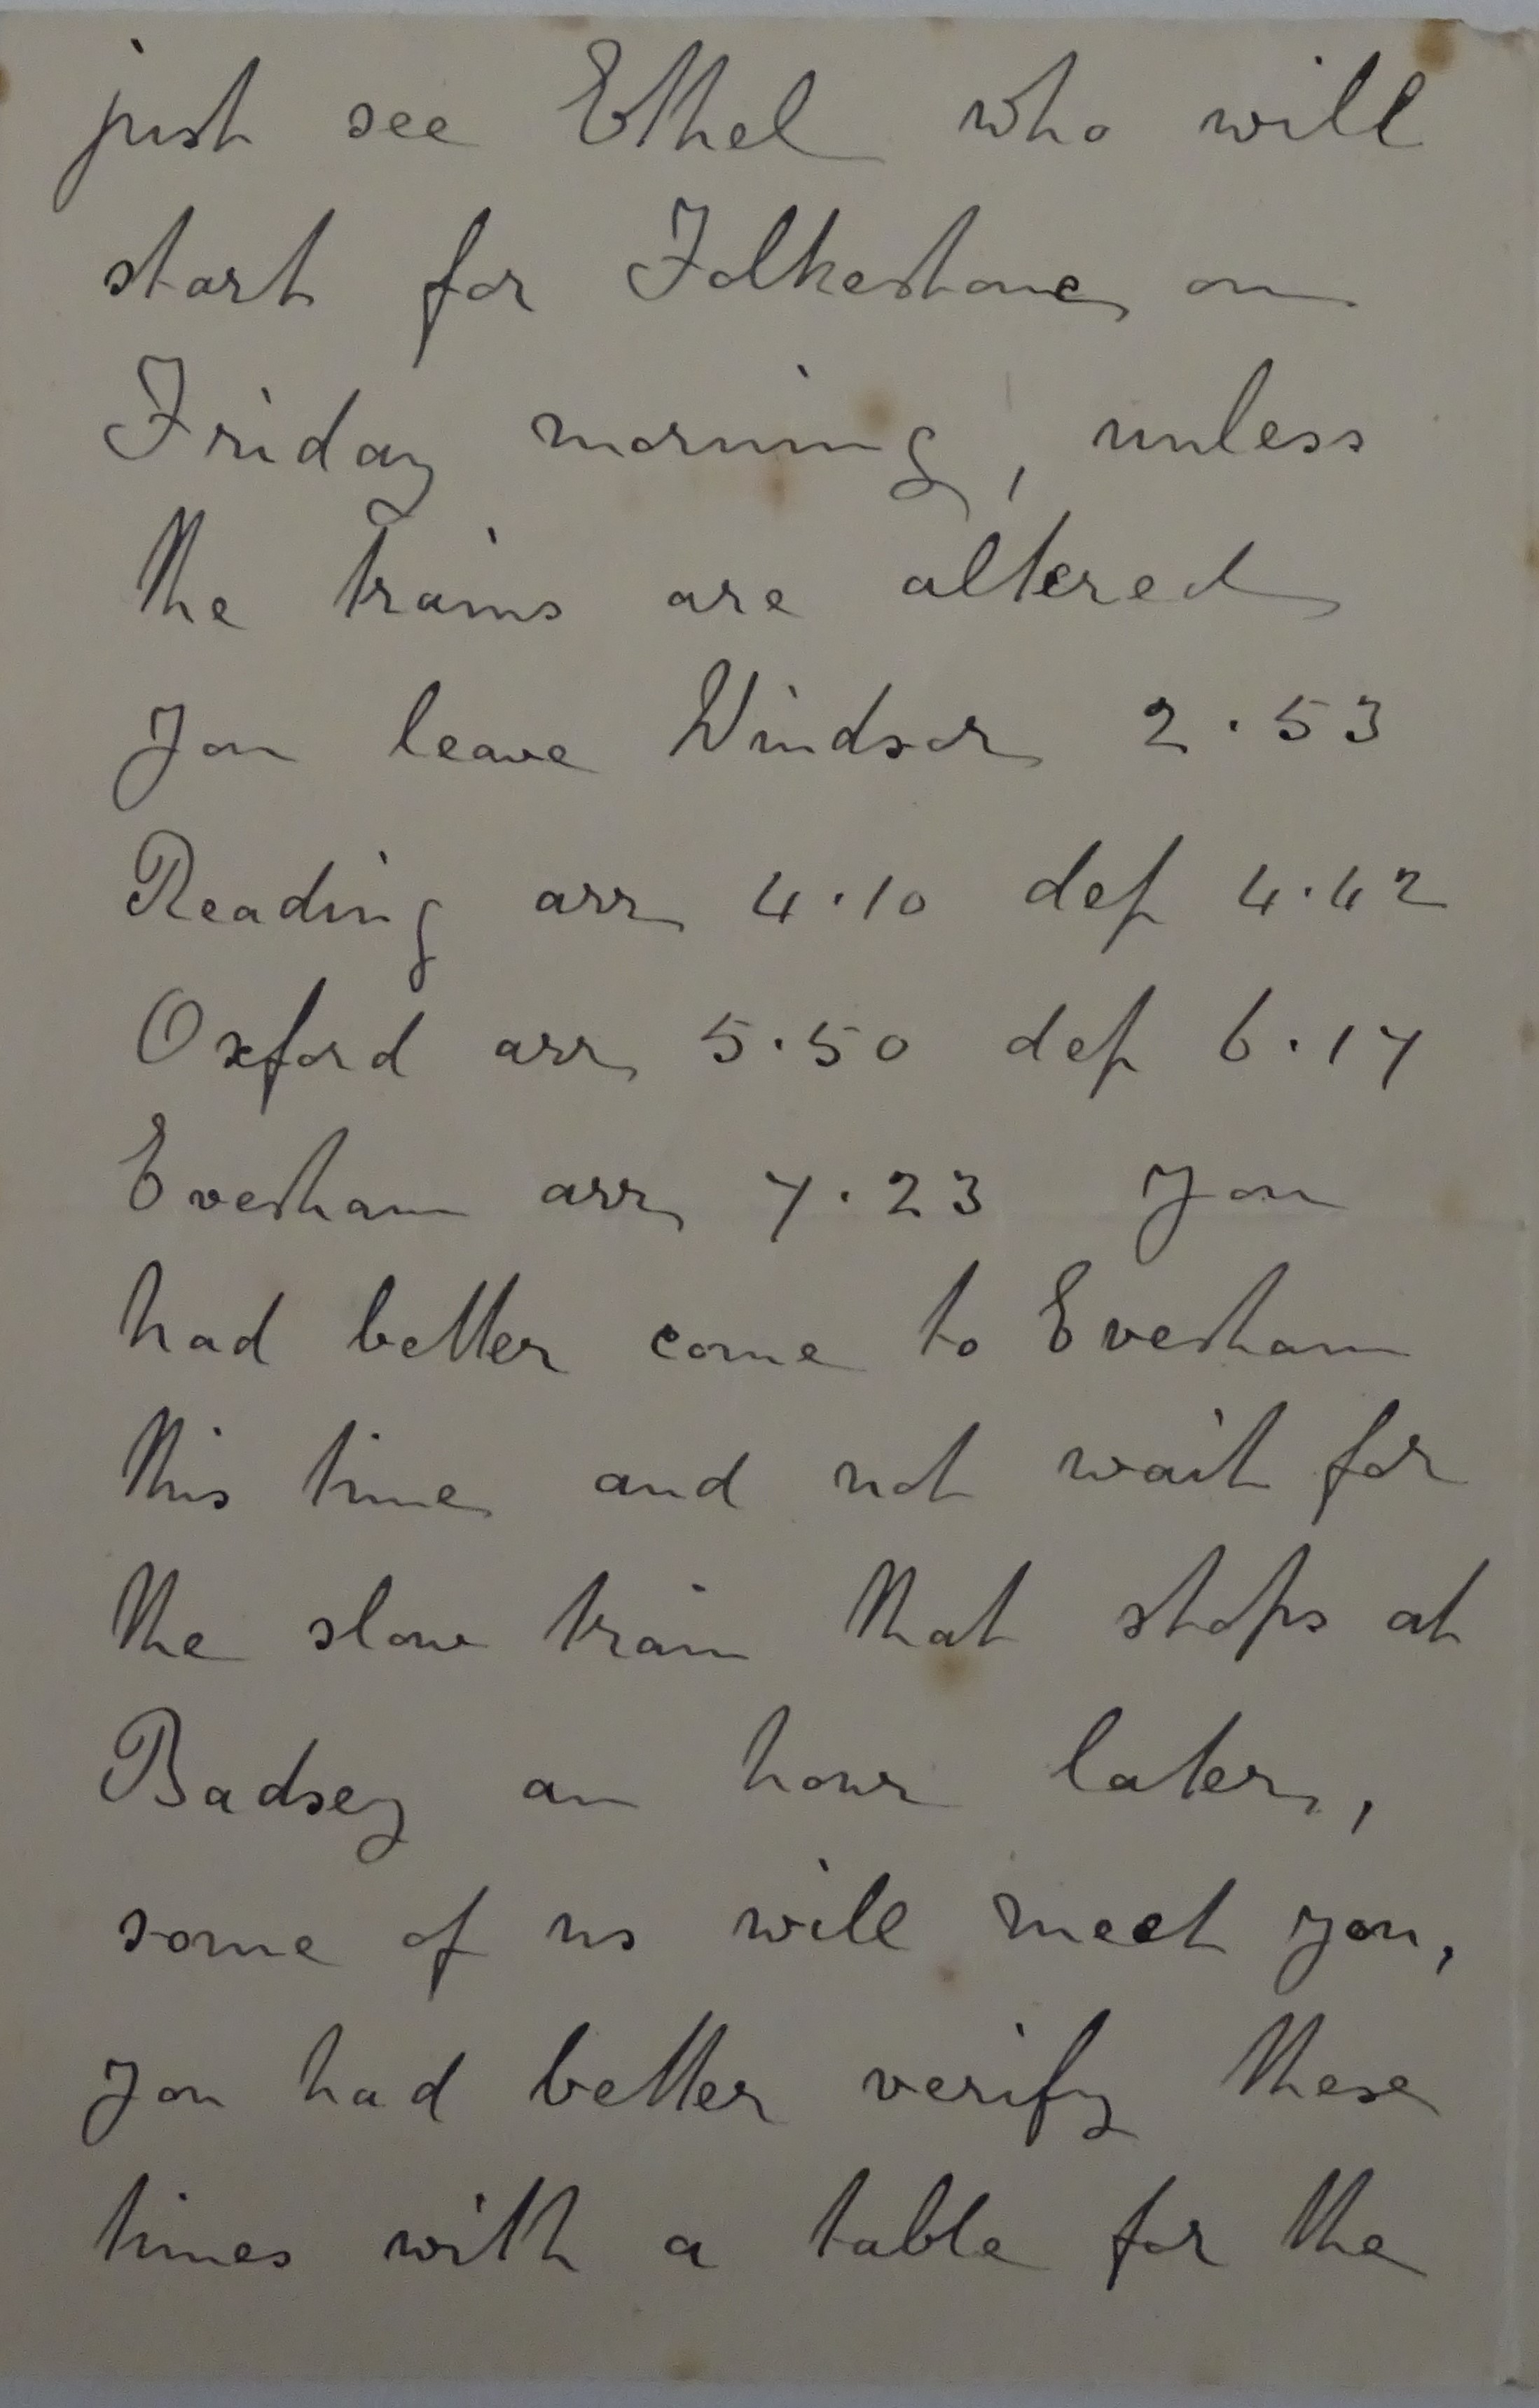 just see Ethel who will
start for Folkestone on
Friday morning, unless
the trains are altered
you leave Windsor 2.53
Reading arr 4.10 dep 4.42
Oxford arr 5.50 dep 6.17
Evesham arr 7.23 you
had better come to Evesham
this time and not wait for
the slow train that stops at
Badsey an hour later,
some of us will meet you,
you had better verify these
times with a table for the